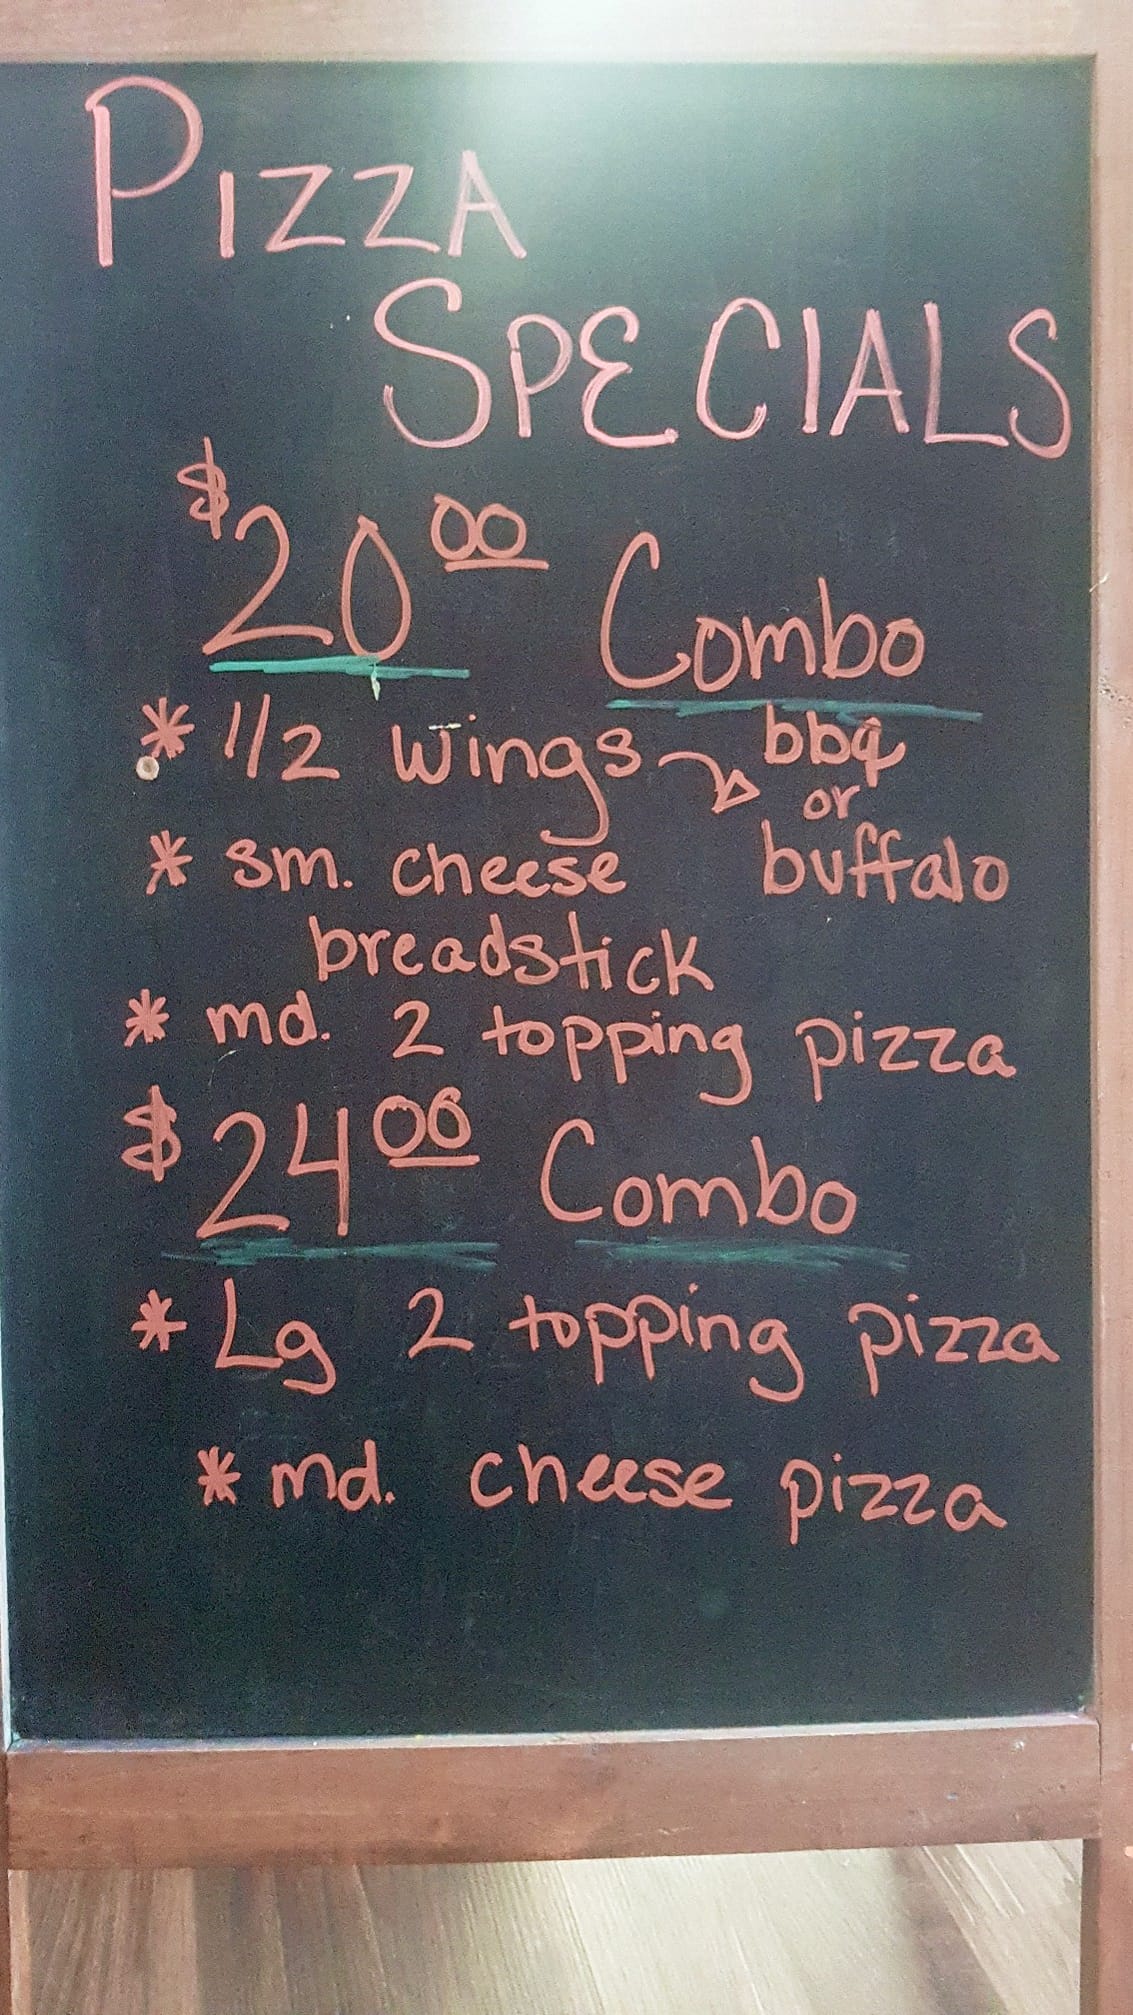 PIZZA
SPECIALS
$20.00 Combo
* 1/2 wings → bbq
or
* sm. cheese buffalo
breadstick
* md. 2 topping pizza
$24.00 Combo
* Lg 2 topping pizza
* md. cheese pizza